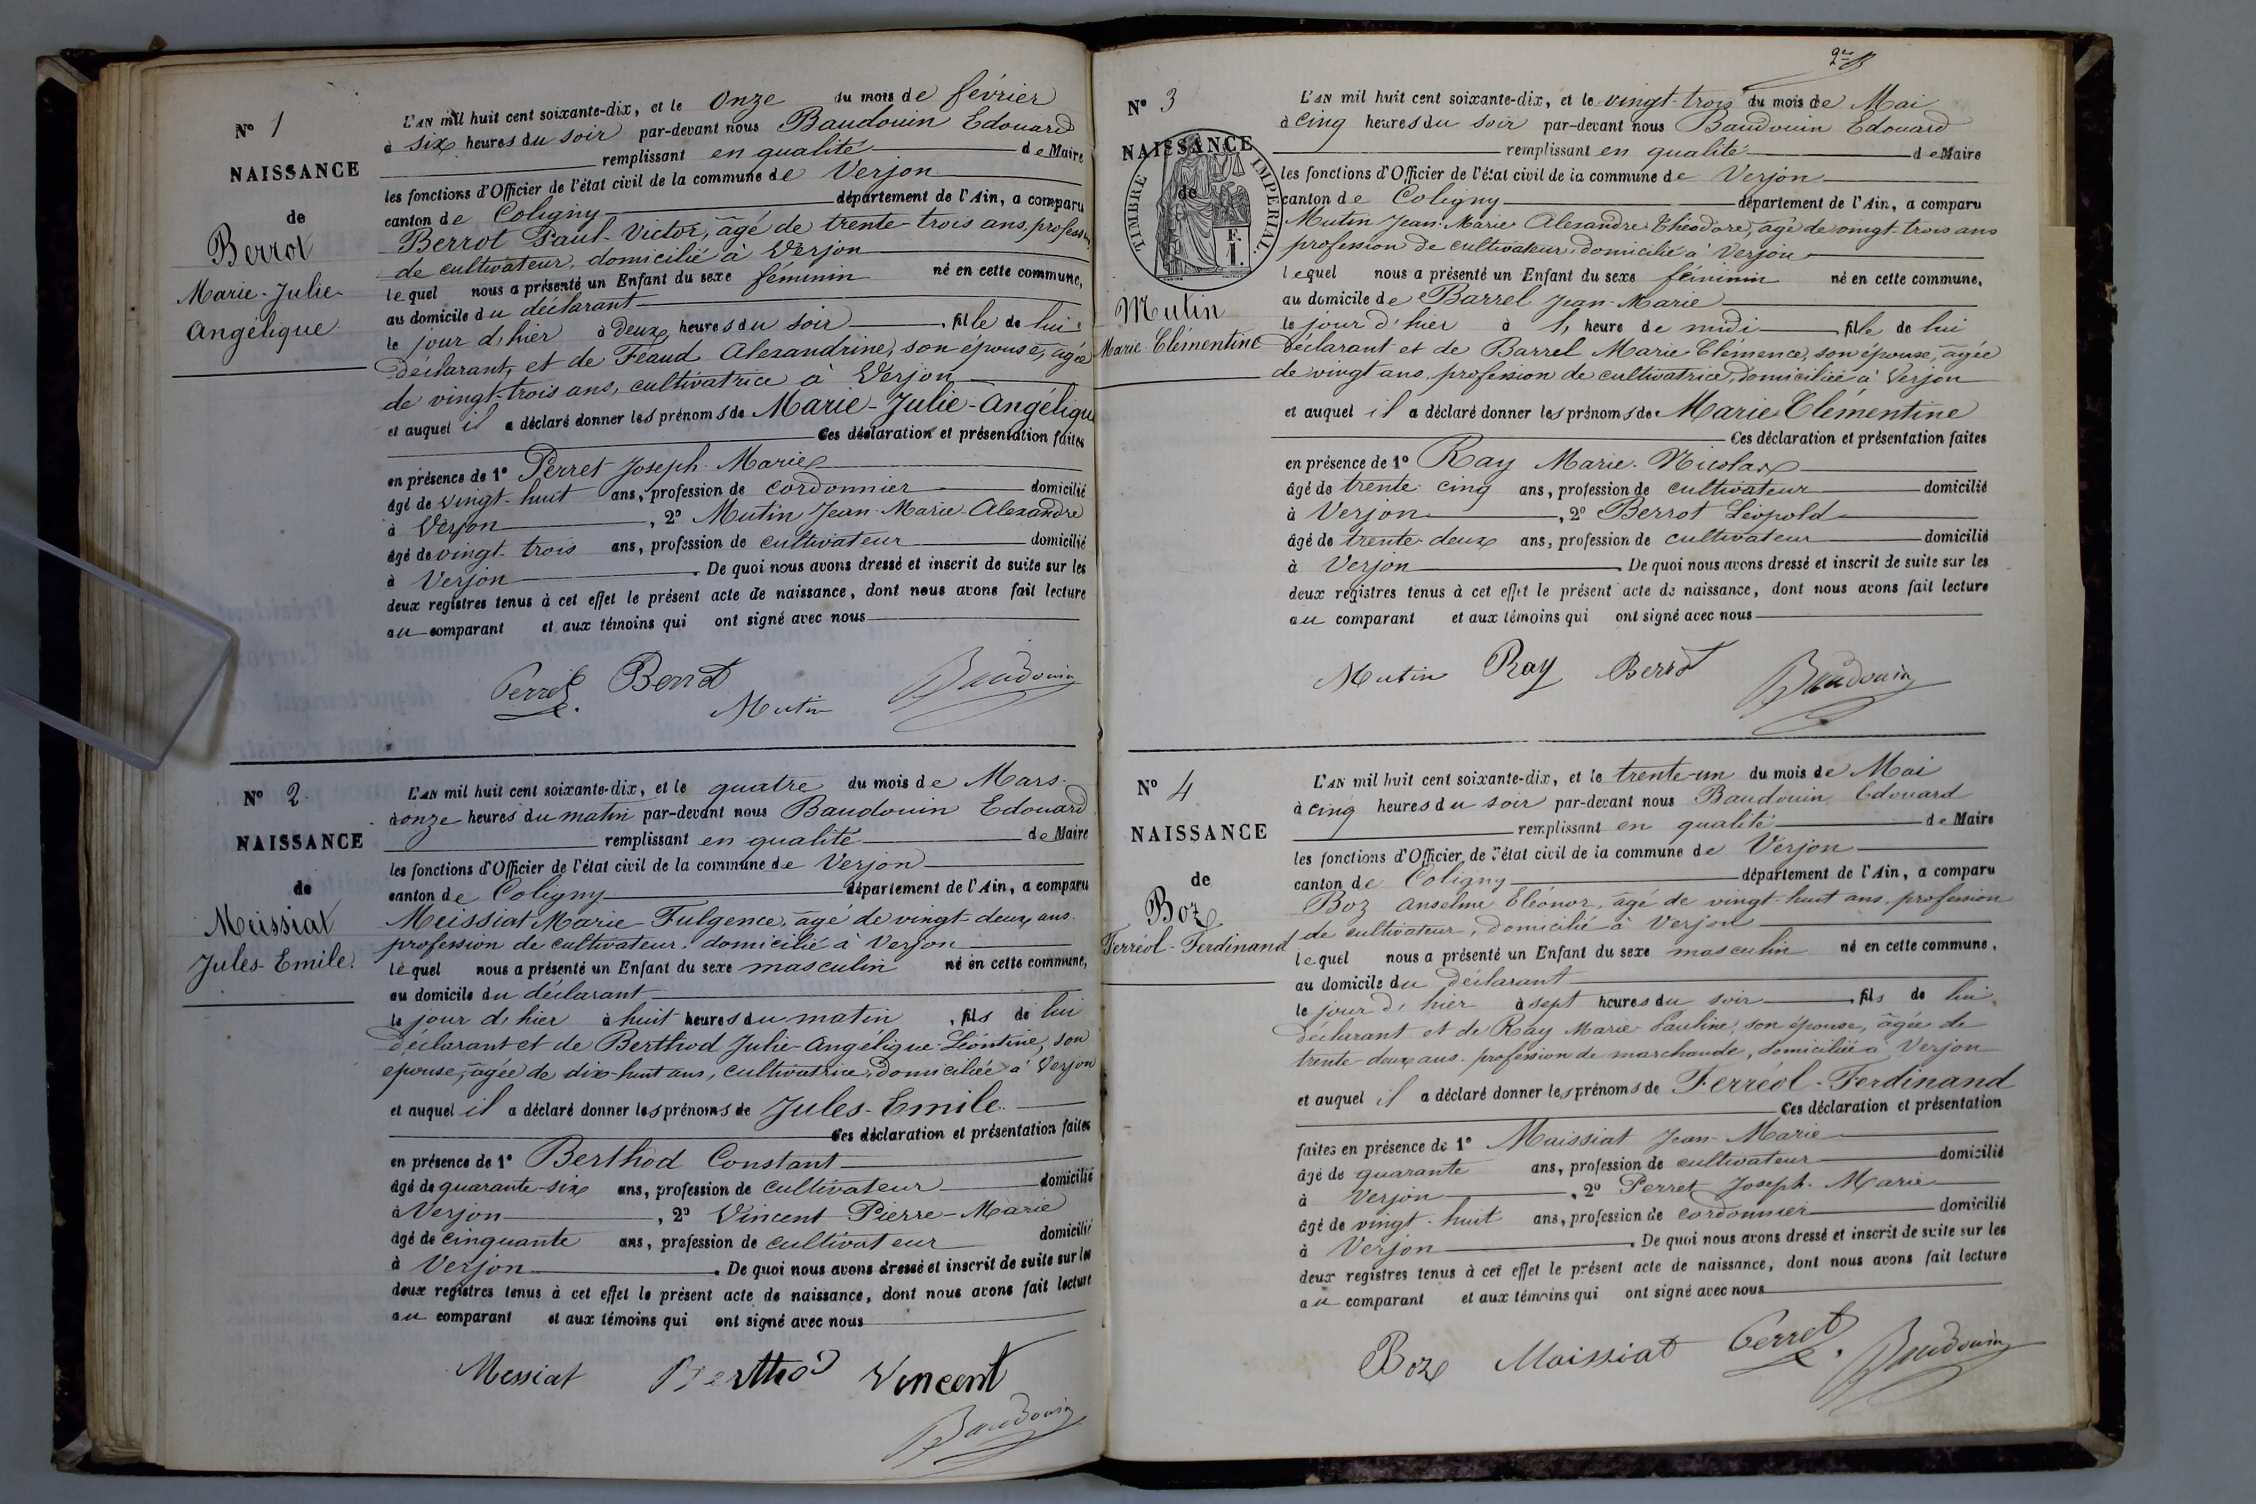 N° 1
NAISSANCE
de
Berrot
Marie-Julie-
Angélique
L'AN mil huit cent soixante-dix, et le onze du mois de février
à six heures du soir par-devant nous Baudouin Edouard
remplissant en qualité de Maire
les fonctions d'Officier de l'état civil de la commune de Verjon
canton de Coligny département de l'Ain, a comparu
Berrot Paul-Victor, âgé de trente-trois ans, profession
de cultivateur, domicilié à Verjon
lequel nous a présenté un Enfant du sexe féminin né en cette commune,
au domicile du déclarant
le jour d'hier à deux heures du soir, fille de lui
déclarant, et de Féaud Alexandrine, son épouse, âgée
de vingt-trois ans, cultivatrice à Verjon
et auquel il a déclaré donner les prénoms de Marie-Julie-Angélique
Ces déclaration et présentation faites
en présence de 1° Perret Joseph-Marie
âgé de vingt-huit ans, profession de cordonnier domicilié
à Verjon, 2° Mutin Jean-Marie-Alexandre
âgé de vingt-trois ans, profession de cultivateur domicilié
à Verjon. De quoi nous avons dressé et inscrit de suite sur les
deux registres tenus à cet effet le présent acte de naissance, dont nous avons fait lecture
au comparant et aux témoins qui ont signé avec nous
Perret Berrot
Mutin Baudouin
N° 2
NAISSANCE
de
Meissiat
Jules-Emile.
L'AN mil huit cent soixante-dix, et le quatre du mois de Mars
à onze heures du matin par-devant nous Baudouin Edouard
remplissant en qualité de Maire
les fonctions d'Officier de l'état civil de la commune de Verjon
canton de Coligny département de l'Ain, a comparu
Meissiat Marie-Fulgence, âgé de vingt-deux ans
profession de cultivateur, domicilié à Verjon
lequel nous a présenté un Enfant du sexe masculin né en cette commune,
au domicile du déclarant
le jour d'hier à huit heures du matin, fils de lui
déclarant et de Berthod Julie-Angélique-Léontine, son
épouse, âgée de dix-huit ans, cultivatrice, domiciliée à Verjon
et auquel il a déclaré donner les prénoms de Jules-Emile.
Ces déclaration et présentation faites
en présence de 1° Berthod Constant
âgé de quarante-six ans, profession de cultivateur domicilié
à Verjon, 2° Vincent Pierre-Marie
âgé de cinquante ans, profession de cultivateur domicilié
à Verjon. De quoi nous avons dressé et inscrit de suite sur les
deux registres tenus à cet effet le présent acte de naissance, dont nous avons fait lecture
au comparant et aux témoins qui ont signé avec nous
Messiat Berthod Vincent
Baudouin
N° 3
NAISSANCE
de
TIMBRE IMPERIAL.
F.
1.
Mutin
Marie-Clémentine
L'AN mil huit cent soixante-dix, et le vingt-trois du mois de Mai
à cinq heures du soir par-devant nous Baudouin Edouard
remplissant en qualité de Maire
les fonctions d'Officier de l'état civil de la commune de Verjon
canton de Coligny département de l'Ain, a comparu
Mutin Jean-Marie Alexandre Théodore, âgé de vingt-trois ans
profession de cultivateur, domicilié à Verjon
lequel nous a présenté un Enfant du sexe féminin né en cette commune,
au domicile de Barrel Jean-Marie
le jour d'hier à 1/2 heure de midi, fille de lui
déclarant et de Barrel Marie Clémence, son épouse, âgée
de vingt ans, profession de cultivatrice, domiciliée à Verjon
et auquel il a déclaré donner les prénoms de Marie Clémentine
Ces déclaration et présentation faites
en présence de 1° Ray Marie-Nicolas
âgé de trente-cinq ans, profession de cultivateur domicilié
à Verjon, 2° Berrot Léopold
âgé de trente-deux ans, profession de cultivateur domicilié
à Verjon. De quoi nous avons dressé et inscrit de suite sur les
deux registres tenus à cet effet le présent acte de naissance, dont nous avons fait lecture
au comparant et aux témoins qui ont signé avec nous
Mutin Ray Berrot Baudouin
N° 4
NAISSANCE
de
Boz
Ferréol-Ferdinand
L'AN mil huit cent soixante-dix, et le trente-un du mois de Mai
à cinq heures du soir par-devant nous Baudouin Edouard
remplissant en qualité de Maire
les fonctions d'Officier de l'état civil de la commune de Verjon
canton de Coligny département de l'Ain, a comparu
Boz Anselme Eléonor, âgé de vingt-huit ans, profession
de cultivateur, domicilié à Verjon
lequel nous a présenté un Enfant du sexe masculin né en cette commune,
au domicile du déclarant
le jour d'hier à sept heures du soir, fils de lui,
déclarant et de Ray Marie-Pauline, son épouse, âgée de
trente-deux ans, profession de marchande, domiciliée à Verjon
et auquel il a déclaré donner les prénoms de Ferréol-Ferdinand
Ces déclaration et présentation
faites en présence de 1° Maissiat Jean-Marie
âgé de quarante ans, profession de cultivateur domicilié
à Verjon, 2° Perret Joseph-Marie
âgé de vingt-huit ans, profession de cordonnier domicilié
à Verjon. De quoi nous avons dressé et inscrit de suite sur les
deux registres tenus à cet effet le présent acte de naissance, dont nous avons fait lecture
au comparant et aux témoins qui ont signé avec nous
Boz Maissiat Perret Baudouin